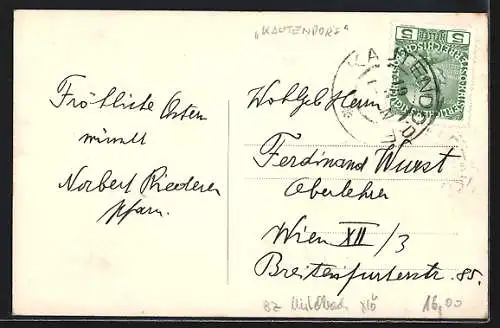 "KAUTENDORF"
KAUTENDORF
5 HELLER 5
Fröhliche Ostern
wünscht
Norbert Riederer
Pfarr.
Wohlgeb Herrn
Ferdinand Wurst
Oberlehrer
Wien XII/3
Breitenfurterstr. 85.
BZ Mistelbach NÖ
16,00